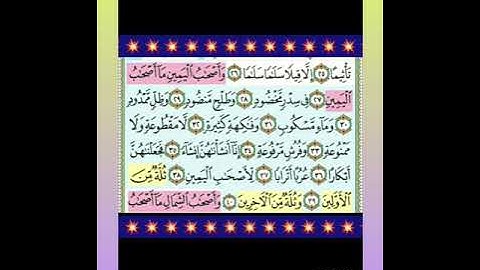 تَأْثِيمًا ٢٥ إِلَّا قِيلًا سَلَٰمًا سَلَٰمًا ٢٦ وَأَصْحَٰبُ ٱلْيَمِينِ مَآ أَصْحَٰبُ
ٱلْيَمِينِ ٢٧ فِى سِدْرٍ مَّخْضُودٍ ٢٨ وَطَلْحٍ مَّنضُودٍ ٢٩ وَظِلٍّ مَّمْدُودٍ
٣٠ وَمَآءٍ مَّسْكُوبٍ ٣١ وَفَٰكِهَةٍ كَثِيرَةٍ ٣٢ لَّا مَقْطُوعَةٍ وَلَا
مَمْنُوعَةٍ ٣٣ وَفُرُشٍ مَّرْفُوعَةٍ ٣٤ إِنَّآ أَنشَأْنَٰهُنَّ إِنشَآءً ٣٥ فَجَعَلْنَٰهُنَّ
أَبْكَارًا ٣٦ عُرُبًا أَتْرَابًا ٣٧ لِّأَصْحَٰبِ ٱلْيَمِينِ ٣٨ ثُلَّةٌ مِّنَ
ٱلْأَوَّلِينَ ٣٩ وَثُلَّةٌ مِّنَ ٱلْءَاخِرِينَ ٤٠ وَأَصْحَٰبُ ٱلشِّمَالِ مَآ أَصْحَٰبُ